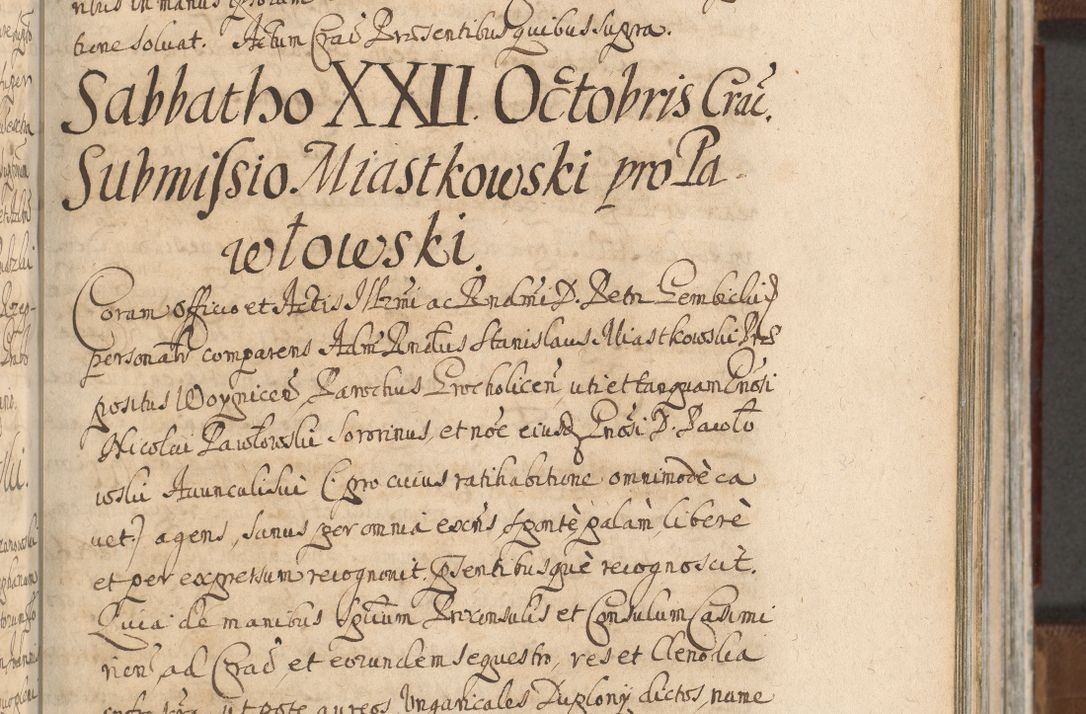 tione soluat. Actum Crac̃ Pręsentibus quibus supra.
Sabbatho XXII. Octobris Crac̃.
Submissio Miastkowski pro Pa
włowski.
Coram Officio et Actis Illr̃mi ac Rndmi D. Petri Gembicki
personalr̃ comparens Adm̃ Rndus Stanislaus Miastkowski Præ
positus Woynicen̄, Parochus Procholicen̄, uti et tanquam Gnosi
Nicolai Pawłowski Sororinus, et nõe eiusd Gnosi D. Pawło
wski Auunculi sui (: pro cuius ratihabitione omnimodè ca
uet:) agens, sanus per omnia exn̄s spontè palàm liberè
et per expressum recognouit, pñsentibusquè recognoscit.
Quia de manibus Spctum Proconsulis et Consulum Casimi
rien̄ ad Crac̃ et eorundem sequestro, res et Clenodia
ut pote aureos Vngaricales Duplony dictos, nume